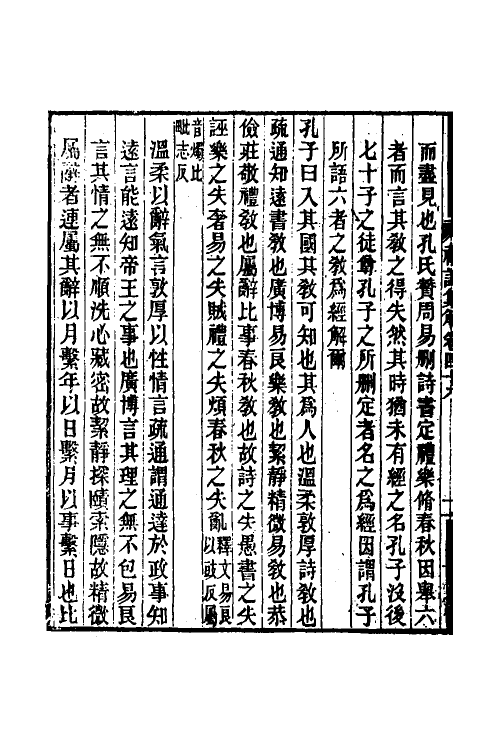 而盡見也孔氏贊周易刪詩書定禮樂脩春秋因舉六
者而言其敎之得失然其時猶未有經之名孔子沒後
七十子之徒尊孔子之所刪定者名之爲經因謂孔子
所語六者之敎爲經解爾
孔子曰入其國其敎可知也其爲人也溫柔敦厚詩敎也
疏通知遠書敎也廣博易良樂敎也絜靜精微易敎也恭
儉莊敬禮敎也屬辭比事春秋敎也故詩之失愚書之失
誣樂之失奢易之失賊禮之失煩春秋之失亂釋文易良以豉反屬
音燭比毗志反
溫柔以辭氣言敦厚以性情言疏通謂通達於政事知
遠言能遠知帝王之事也廣博言其理之無不包易良
言其情之無不順洗心藏密故絜靜探賾索隱故精微
屬辭者連屬其辭以月繫年以日繫月以事繫日也比